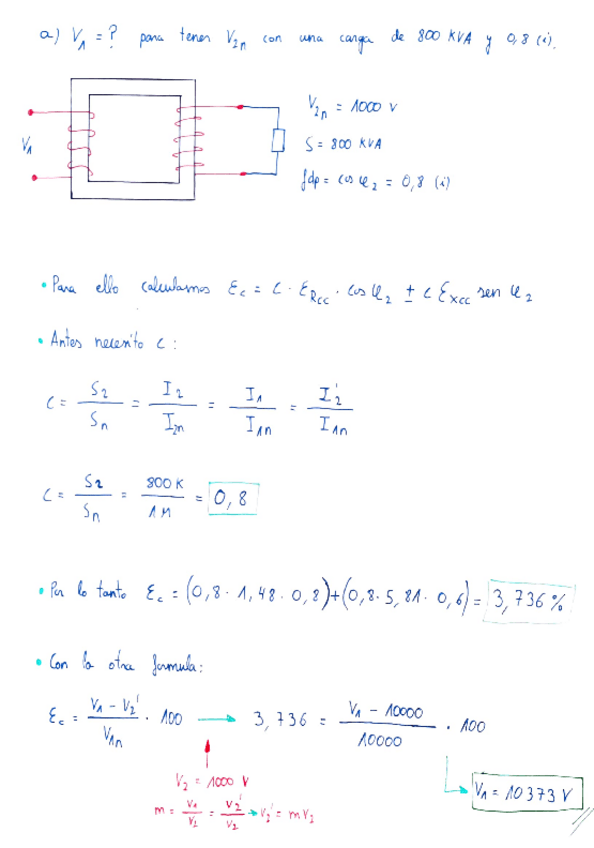 a) V₁ = ? para tener V₂ₙ con una carga de 800 KVA y 0,8 (i).
V₁
V₂ₙ = 1000 V
S = 800 KVA
fdp = cos φ₂ = 0,8 (i)
• Para ello calculamos Ec = C · ERcc · cos φ₂ ± C EXcc sen φ₂
• Antes necesito C :
C = S₂/Sₙ = I₂/I₂ₙ = I₁/I₁ₙ = I₂'/I₁ₙ
C = S₂/Sₙ = 800 K/1 M = 0,8
• Por lo tanto Ec = (0,8 · 1,48 · 0,8) + (0,8 · 5,81 · 0,6) = 3,736 %
• Con la otra formula:
Ec = (V₁ - V₂')/V₁ₙ · 100 → 3,736 = (V₁ - 10000)/10000 · 100
V₂ = 1000 V
m = V₁/V₂ = V₂'/V₂ → V₂' = m V₂
V₁ = 10373 V